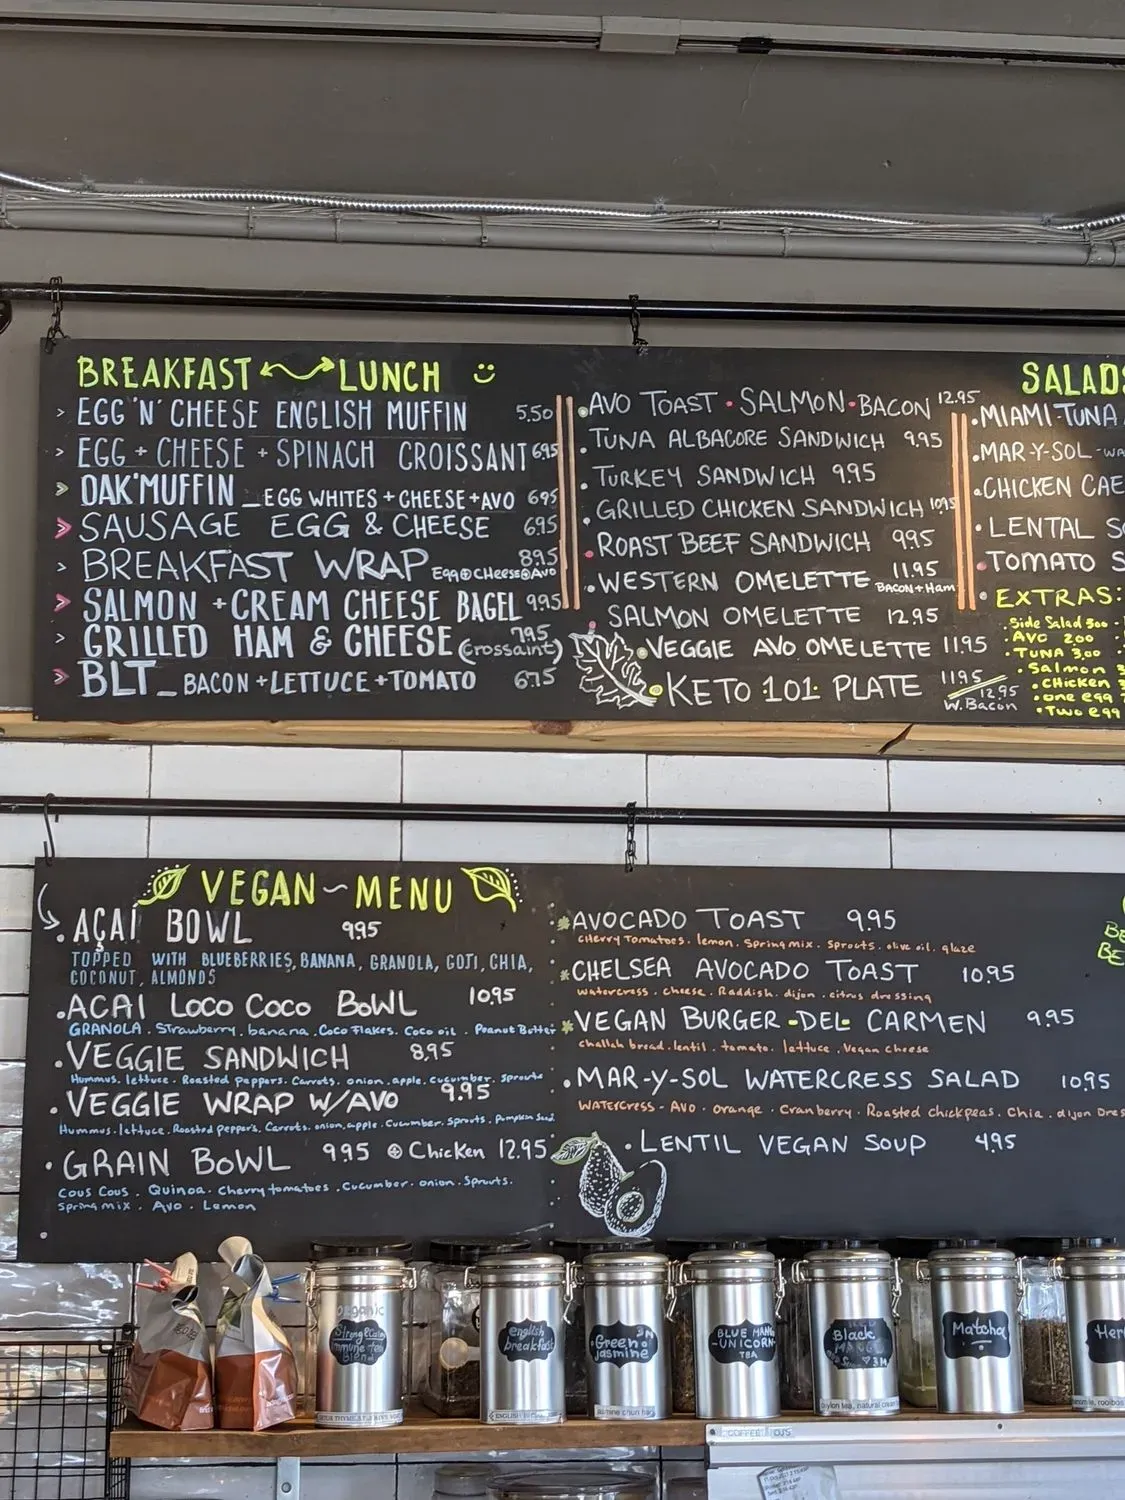 BREAKFAST LUNCH
> EGG 'N' CHEESE ENGLISH MUFFIN 5.50
> EGG + CHEESE + SPINACH CROISSANT 6.95
> OAK'MUFFIN _ EGG WHITES + CHEESE + AVO 6.95
> SAUSAGE EGG & CHEESE 6.95
> BREAKFAST WRAP 8.95
Egg⊕CHeese⊕Avo
> SALMON + CREAM CHEESE BAGEL 9.95
> GRILLED HAM & CHEESE (Crossaint) 7.95
> BLT_ BACON + LETTUCE + TOMATO 6.75
AVO TOAST · SALMON · BACON 12.95
TUNA ALBACORE SANDWICH 9.95
TURKEY SANDWICH 9.95
GRILLED CHICKEN SANDWICH 10.95
ROAST BEEF SANDWICH 9.95
WESTERN OMELETTE 11.95
BACON + Ham
SALMON OMELETTE 12.95
VEGGIE AVO OMELETTE 11.95
KETO 101 PLATE 11.95
12.95
W. Bacon
SALADS
MIAMI TUNA
MAR-Y-SOL
CHICKEN CAE
LENTAL S
TOMATO S
EXTRAS:
Side Salad 3.00
AVC 2.00
TUNA 3.00
Salmon 3
CHicken
one egg
Two egg
VEGAN ~ MENU
AÇAÍ BOWL 9.95
TOPPED WITH BLUEBERRIES, BANANA, GRANOLA, GOJI, CHIA,
COCONUT, ALMONDS
ACAI LOCO COCO BOWL 10.95
GRANOLA . Strawberry . banana . Coco Flakes . Coco oil . Peanut Butter
VEGGIE SANDWICH 8.95
Hummus. lettuce . Roasted peppers. Carrots. onion. apple. cucumber. sprouts
VEGGIE WRAP W/AVO 9.95
Hummus. lettuce. Roasted peppers. Carrots. onion. apple. Cucumber. Sprouts. Pumpkin Seed
GRAIN BOWL 9.95 ⊕ Chicken 12.95
Cous Cous . Quinoa. Cherry tomatoes . Cucumber. onion . Sprouts.
Spring mix . Avo . Lemon
AVOCADO TOAST 9.95
CHerry Tomatoes. lemon. Spring mix . Sprouts. olive oil. glaze
CHELSEA AVOCADO TOAST 10.95
watercress . cheese. Raddish. dijon . citrus dressing
VEGAN BURGER -DEL- CARMEN 9.95
challah bread. lentil . tomato. lettuce . Vegan cheese
MAR-Y-SOL WATERCRESS SALAD 10.95
WATERCRESS - AVO . orange . Cranberry . Roasted chickpeas. Chia . dijon Dres
LENTIL VEGAN SOUP 4.95
BE
BE
organic
Strong & Calm
immune tea
Blend
english
breakfast
Green
Jasmine
BLUE
-UNICORN-
TEA
Black
Matcha
Her
ENGLISH
jasmine chun
ylon tea, natural
COFFEE